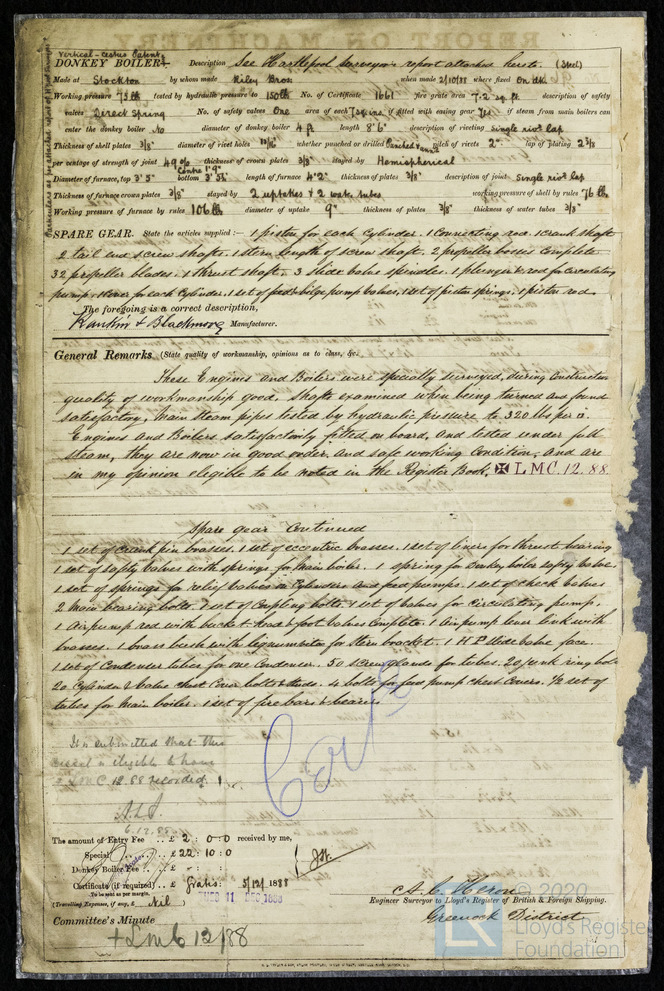 Vertical - Cestus Patent
DONKEY BOILER— Description See Hartlepool Surveyor's report attached hereto. (Steel)
Made at Stockton by whom made Riley Bros. when made 2/10/88 where fixed On dk
Working pressure 75 lb tested by hydraulic pressure to 150 lb No. of Certificate 1661 fire grate area 7.2 sq. ft. description of safety
valves Direct Spring No. of safety valves One area of each 7 sq ins if fitted with easing gear Yes if steam from main boilers can
enter the donkey boiler No diameter of donkey boiler 4 ft length 8'6" description of riveting single rivt lap
Thickness of shell plates 3/8" diameter of rivet holes whether punched or drilled pitch of rivets 2" lap of plating
per centage of strength of joint 49% thickness of crown plates 3/8" stayed by Hemispherical
Diameter of furnace, top 3'5" bottom length of furnace 4'2" thickness of plates 3/8" description of joint Single rivt lap
Thickness of furnace crown plates 3/8" stayed by 2 uptakes & 2 water tubes working pressure of shell by rules 76 lb
Working pressure of furnace by rules 106 lb diameter of uptake 9" thickness of plates 3/8" thickness of water tubes 3/8"
SPARE GEAR. State the articles supplied:— 1 piston for each cylinder. 1 Connecting rod. 1 crank shaft
2 tail end screw shafts. 1 stern length of screw shaft. 2 propeller bosses complete
32 propeller blades. 1 thrust shaft. 3 slide valve spindles. 1 plunger & rod for Circulating
pump. 1 lever for each cylinder. 1 set of feed & bilge pump valves, 1 set of piston springs. 1 piston rod.
The foregoing is a correct description,
Rankin & Blackmore Manufacturer.
General Remarks (State quality of workmanship, opinions as to class, &c.
These Engines and Boilers were specially surveyed, during Construction
quality of workmanship good. Shafts examined when being turned and found
satisfactory, Main Steam pipes tested by hydraulic pressure to 320 lbs per □.
Engines and Boilers satisfactorily fitted on board, and tested under full
steam, they are now in good order, and safe working Condition, and are
in my opinion eligible to be noted in the Register Book. ✠ LMC. 12. 88.
Spare gear Continued
1 set of crank pin brasses. 1 set of eccentric brasses. 1 set of liners for thrust bearing
1 set of safety valves with springs for Main boiler. 1 spring for Donkey boiler safety valve
1 set of springs for relief valves on Cylinders and feed pumps. 1 set of check valves
2 Main bearing bolts. 1 set of Coupling bolts. 1 set of valves for circulating pump.
1 Air pump rod with bucket head & foot valves Complete. 1 Air pump lever link with
brasses. 1 brass bush with lignumvitae for Stern bracket. 1 H P Slide valve face.
1 set of Condenser tubes for one Condenser. 50 screw glands for tubes. 20 junk ring bolts
20 Cylinder & Valve chest Cover bolts & studs. 4 bolts for feed pump chest Covers. 1/2 set of
tubes for Main boiler. 1 set of fire bars & bearers
It is submitted that this
vessel is eligible to have
LMC 12.88 recorded
6.12.88
The amount of Entry Fee .. £ 2 : 0 : 0 received by me,
Special .. £ 22 : 10 : 0
Donkey Boiler Fee .. £ - : - : -
Certificate (if required) .. £ Gratis : 5/12/1888
To be sent as per margin.
(Travelling Expenses, if any, £ Nil )
TUES 11 DEC 1888
A. C. Heron
Engineer Surveyor to Lloyd's Register of British & Foreign Shipping.
Greenock District
Committee's Minute
+ Lmc 12/88
© 2020
Lloyd's Register
Foundation